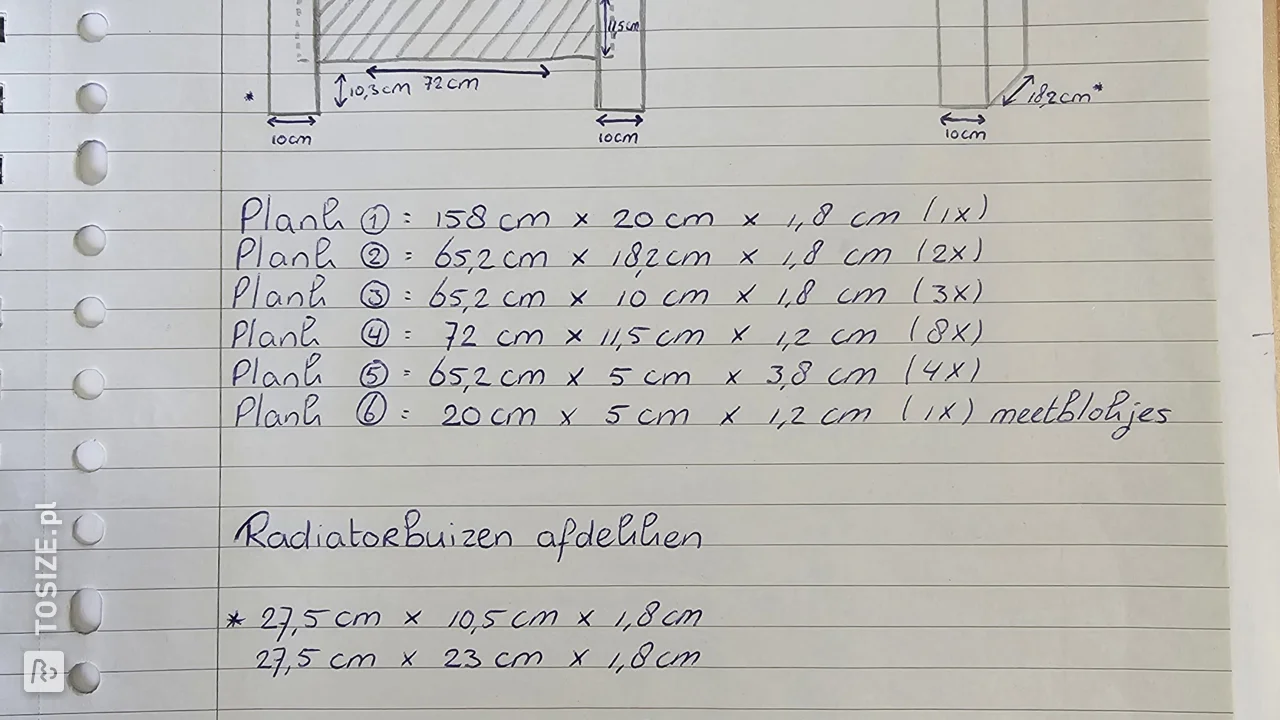 11,5cm
10,3cm 72cm
* 18,2cm*
10cm 10cm 10cm
Plank ① = 158 cm x 20 cm x 1,8 cm (1x)
Plank ② = 65,2 cm x 18,2 cm x 1,8 cm (2x)
Plank ③ = 65,2 cm x 10 cm x 1,8 cm (3x)
Plank ④ = 72 cm x 11,5 cm x 1,2 cm (8x)
Plank ⑤ = 65,2 cm x 5 cm x 3,8 cm (4x)
Plank ⑥ = 20 cm x 5 cm x 1,2 cm (1x) meetblokjes
Radiatorbuizen afdekken
* 27,5 cm x 10,5 cm x 1,8 cm
27,5 cm x 23 cm x 1,8 cm
TOSIZE.pl